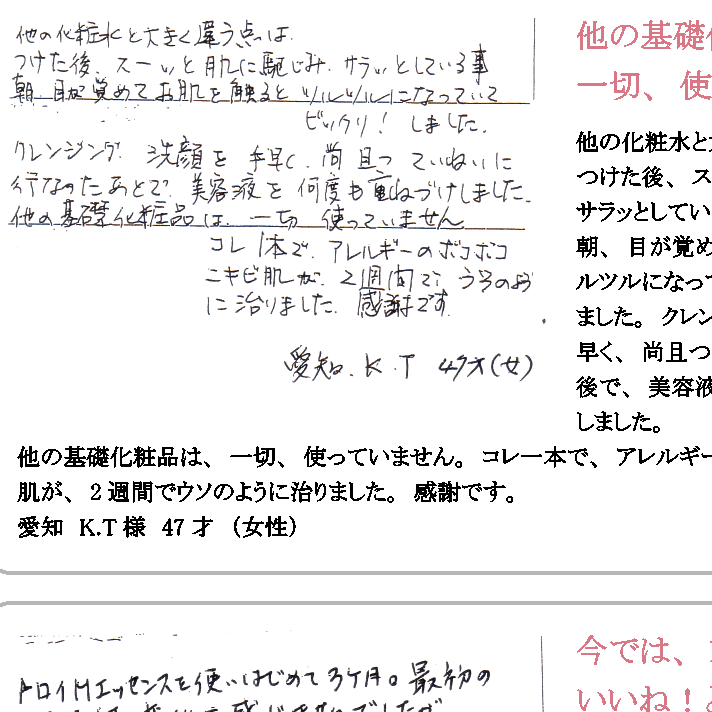 他の化粧水と大きく違う点は.
つけた後、スーッと肌に馴じみ、サラッとしている事
朝、目が覚めてお肌を触るとツルツルになっていて
ビックリ！しました.
クレンジング、洗顔を手早く、尚且つていねいに
行なったあとで、美容液を何度も重ねづけしました.
他の基礎化粧品は、一切使っていません.
コレ1本で、アレルギーのボコボコ
ニキビ肌が、2週間で、うそのよう
に治りました. 感謝です.
愛知. K.T 47才(女)
他の基礎
一切、使
他の化粧水と
つけた後、ス
サラッとしてい
朝、目が覚め
ルツルになって
ました。クレン
早く、尚且つ
後で、美容液
しました。
他の基礎化粧品は、一切、使っていません。コレ一本で、アレルギー
肌が、２週間でウソのように治りました。感謝です。
愛知 K.T様 47才 （女性）
トロイHエッセンスを使いはじめて3ヶ月。最初の
今では、
いいね！